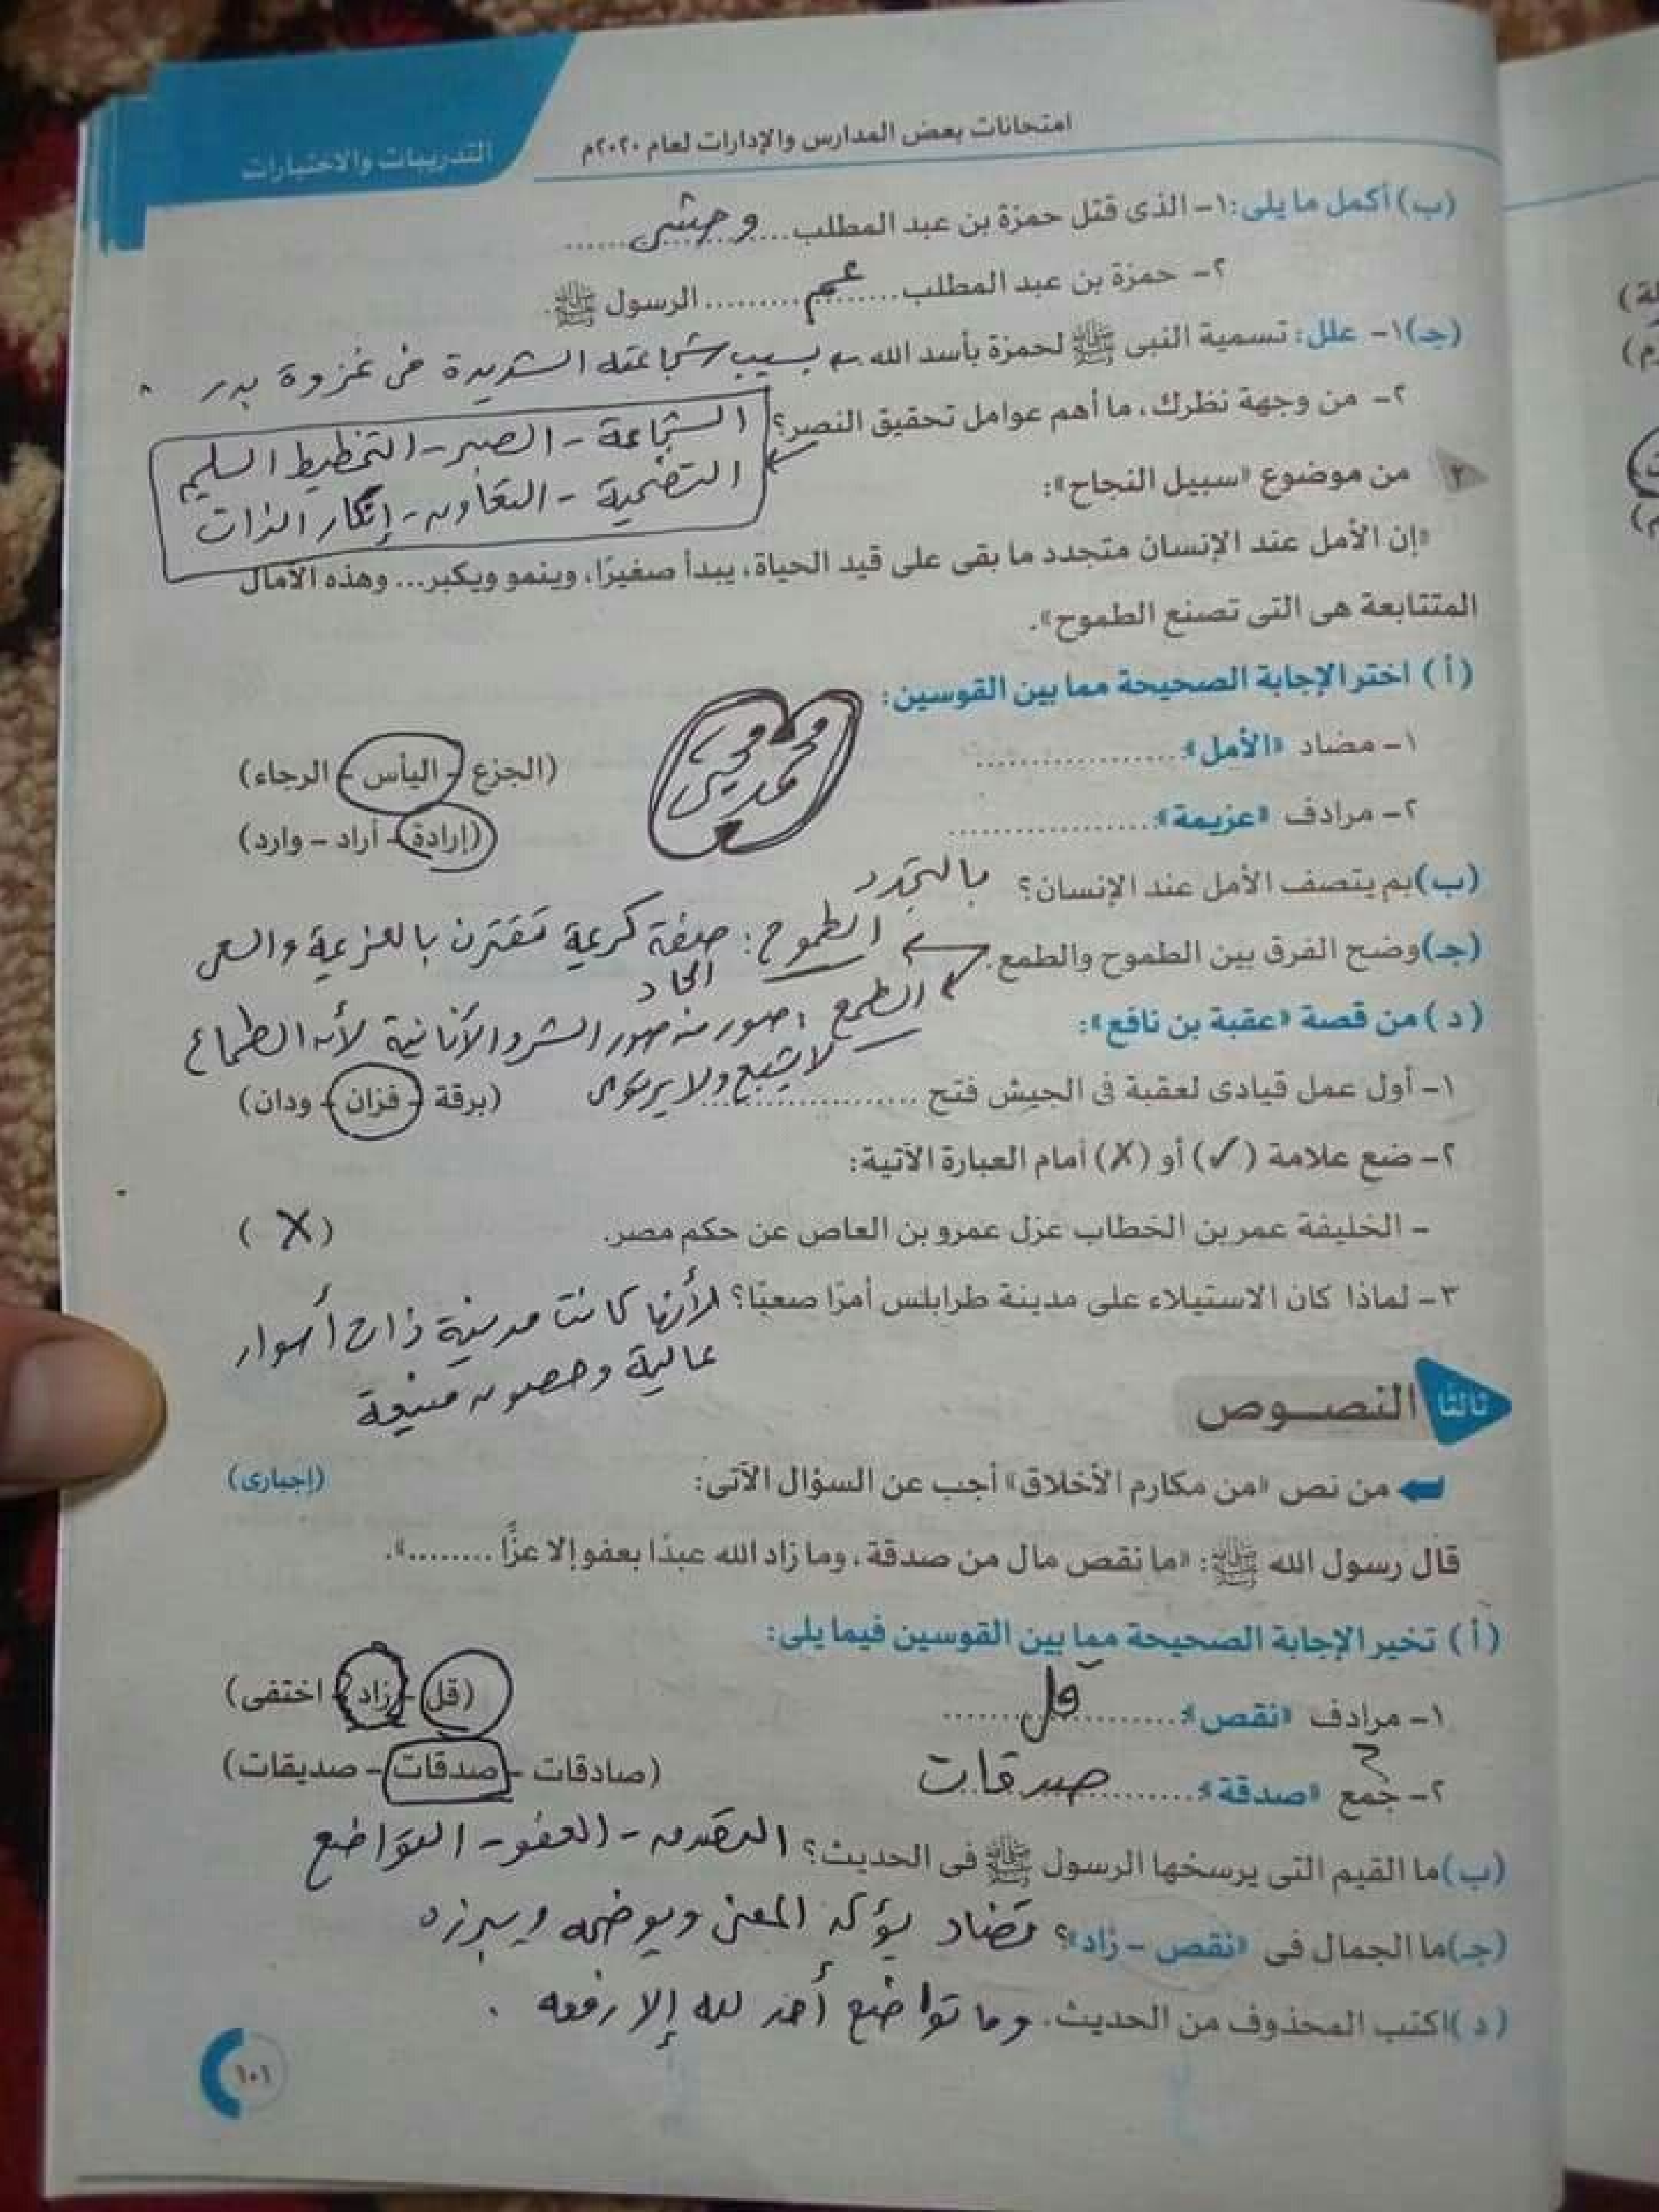 امتحانات بعض المدارس والإدارات لعام ٢٠٢٠م
التدريبات والاختبارات
(ب) أكمل ما يلى: ١- الذى قتل حمزة بن عبد المطلب ......... وحشى .........
٢- حمزة بن عبد المطلب ......... عم ......... الرسول ﷺ.
(جـ) ١- علل: تسمية النبى ﷺ لحمزة بأسد الله. بسبب شجاعته الشديدة فى غزوة بدر
٢- من وجهة نظرك، ما أهم عوامل تحقيق النصر؟ الشجاعة - الصبر - التخطيط السليم
التضحية - التعاون - إنكار الذات
٢ من موضوع «سبيل النجاح»:
«إن الأمل عند الإنسان متجدد ما بقى على قيد الحياة، يبدأ صغيرًا، وينمو ويكبر... وهذه الآمال
المتتابعة هى التى تصنع الطموح».
(أ) اختر الإجابة الصحيحة مما بين القوسين:
١- مضاد «الأمل»: ................... (الجزع - اليأس - الرجاء)
محمد
٢- مرادف «عزيمة»: ................... (إرادة - أراد - وارد)
(ب) بم يتصف الأمل عند الإنسان؟ بالتجدد
(جـ) وضح الفرق بين الطموح والطمع. الطموح: صفة كريمة تقترن بالعزيمة والسعى
الجاد
الطمع: صور من صور الشر والأنانية لأن الطماع
لا يشبع ولا يرتوى
(د) من قصة «عقبة بن نافع»:
١- أول عمل قيادى لعقبة فى الجيش فتح ................... (برقة - فزان - ودان)
٢- ضع علامة (✓) أو (✗) أمام العبارة الآتية:
- الخليفة عمر بن الخطاب عزل عمرو بن العاص عن حكم مصر. (X)
٣- لماذا كان الاستيلاء على مدينة طرابلس أمرًا صعبًا؟ لأنها كانت مدينة ذات أسوار
عالية وحصون منيعة
ثالثا النصوص
من نص «من مكارم الأخلاق» أجب عن السؤال الآتى: (إجبارى)
قال رسول الله ﷺ: «ما نقص مال من صدقة، وما زاد الله عبدًا بعفو إلا عزًّا ........».
(أ) تخير الإجابة الصحيحة مما بين القوسين فيما يلى:
١- مرادف «نقص»: ......... قل ......... (قل - زاد - اختفى)
٢- جمع «صدقة»: ......... صدقات (صادقات - صدقات - صديقات)
(ب) ما القيم التى يرسخها الرسول ﷺ فى الحديث؟ التصدق - العفو - التواضع
(جـ) ما الجمال فى «نقص - زاد»؟ تضاد يؤكد المعنى ويوضحه ويبرزه
(د) اكتب المحذوف من الحديث. وما تواضع أحد لله إلا رفعه .
١٠٦